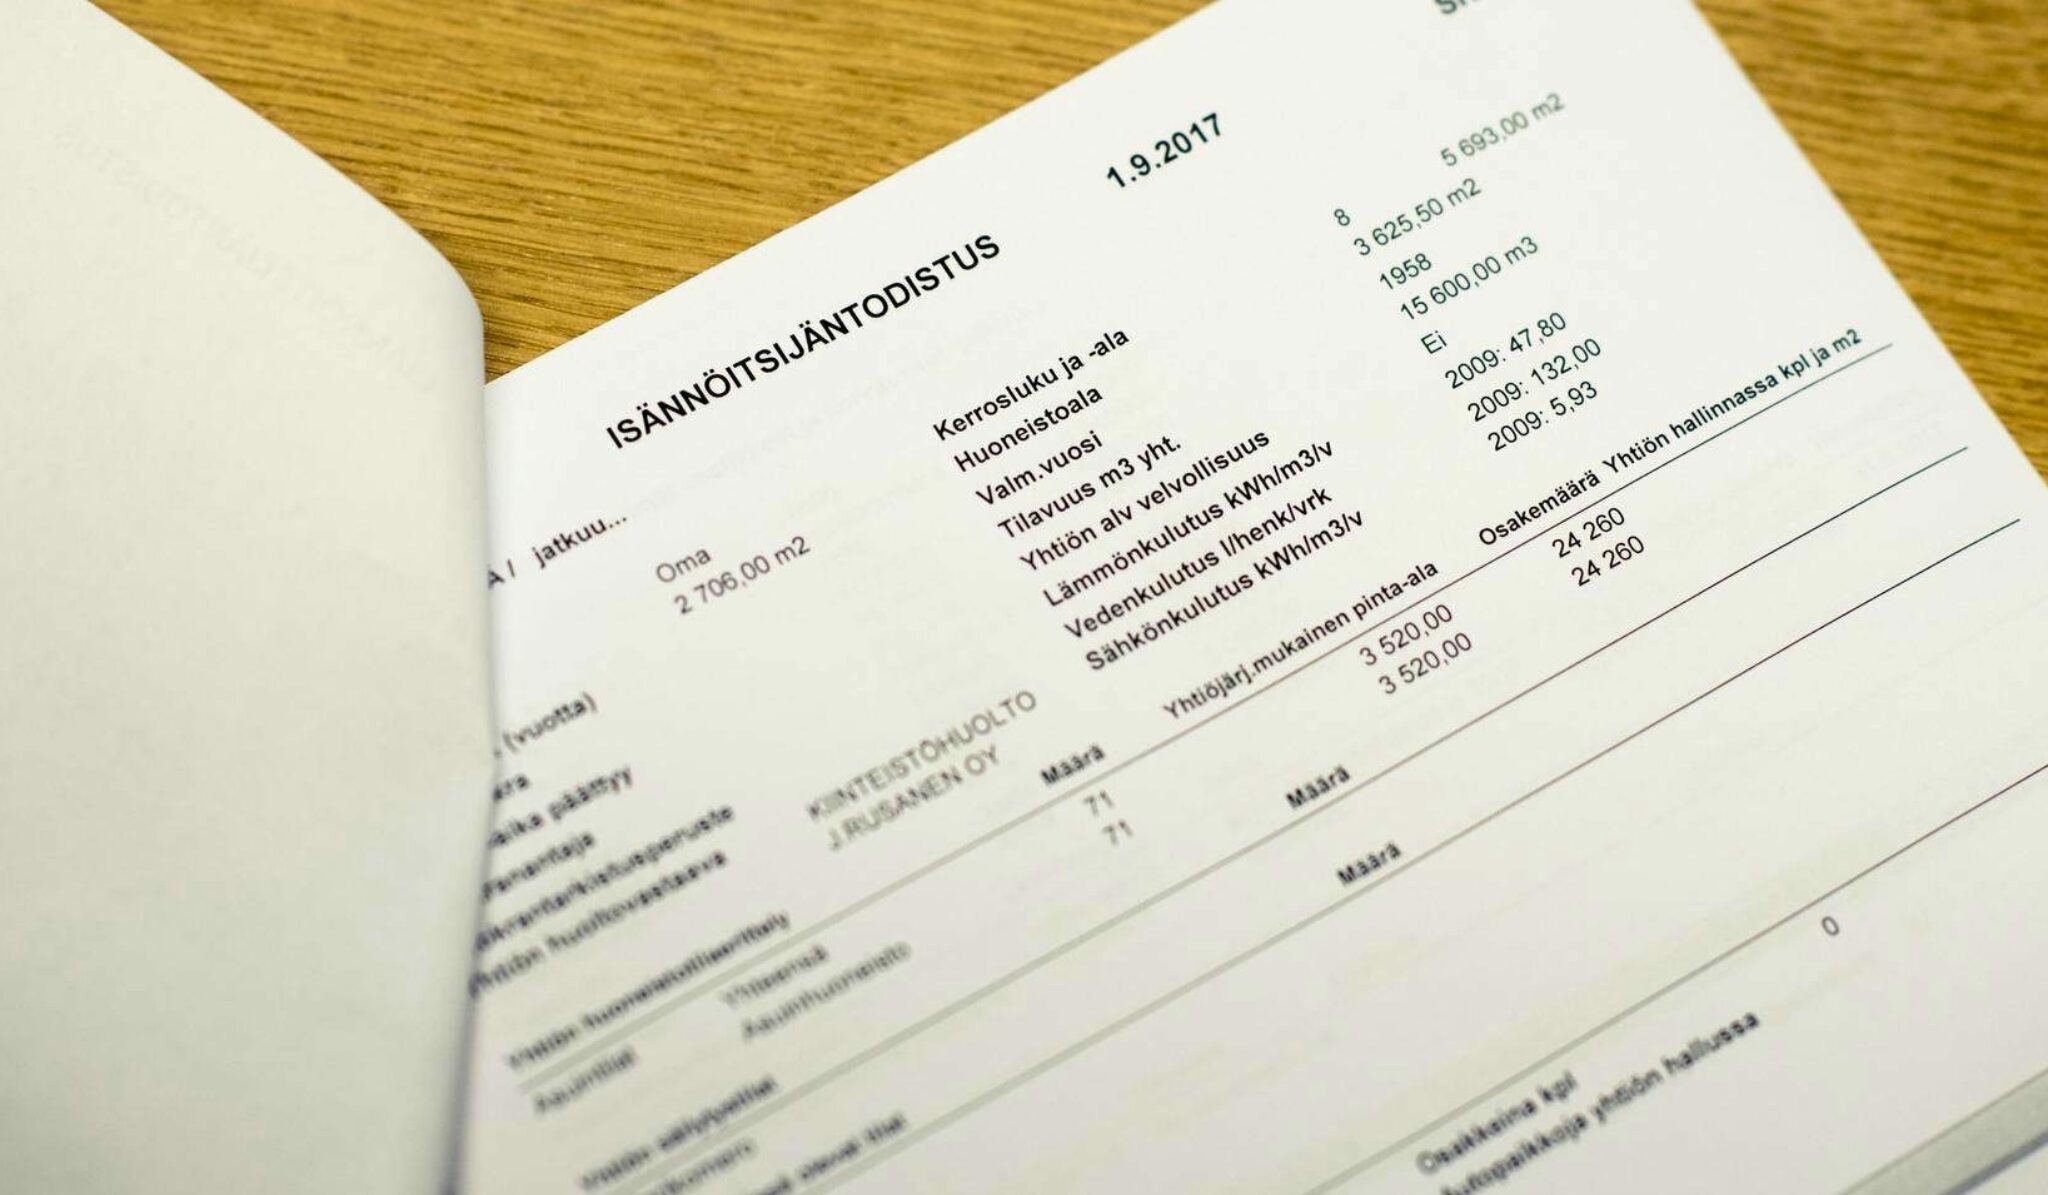 1.9.2017
ISÄNNÖITSIJÄNTODISTUS
A / jatkuu...
Oma
2 706,00 m2
Kerrosluku ja -ala 8 5 693,00 m2
Huoneistoala 3 625,50 m2
Valm.vuosi 1958
Tilavuus m3 yht. 15 600,00 m3
Yhtiön alv velvollisuus Ei
Lämmönkulutus kWh/m3/v 2009: 47,80
Vedenkulutus l/henk/vrk 2009: 132,00
Sähkönkulutus kWh/m3/v 2009: 5,93
(vuotta)
päättyy
KIINTEISTÖHUOLTO
J.RUSANEN OY
Yhtiön huoneistoerittely Määrä Yhtiöjärj.mukainen pinta-ala Osakemäärä Yhtiön hallinnassa kpl ja m2
Yhteensä 71 3 520,00 24 260
Asuintilat Asuinhuoneisto 71 3 520,00 24 260
Määrä
olevat tilat Määrä
0
Osakkaina kpl
Autopaikkoja yhtiön hallussa